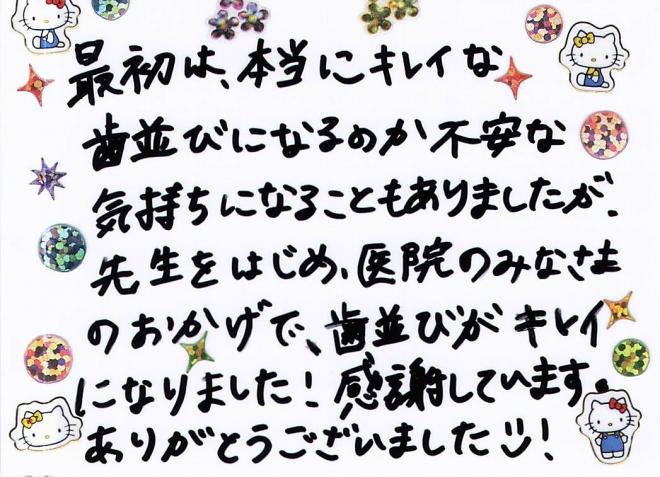 最初は、本当にキレイな
歯並びになるのか不安な
気持ちになることもありましたが、
先生をはじめ、医院のみなさま
のおかげで、歯並びがキレイ
になりました！感謝しています。
ありがとうございました!